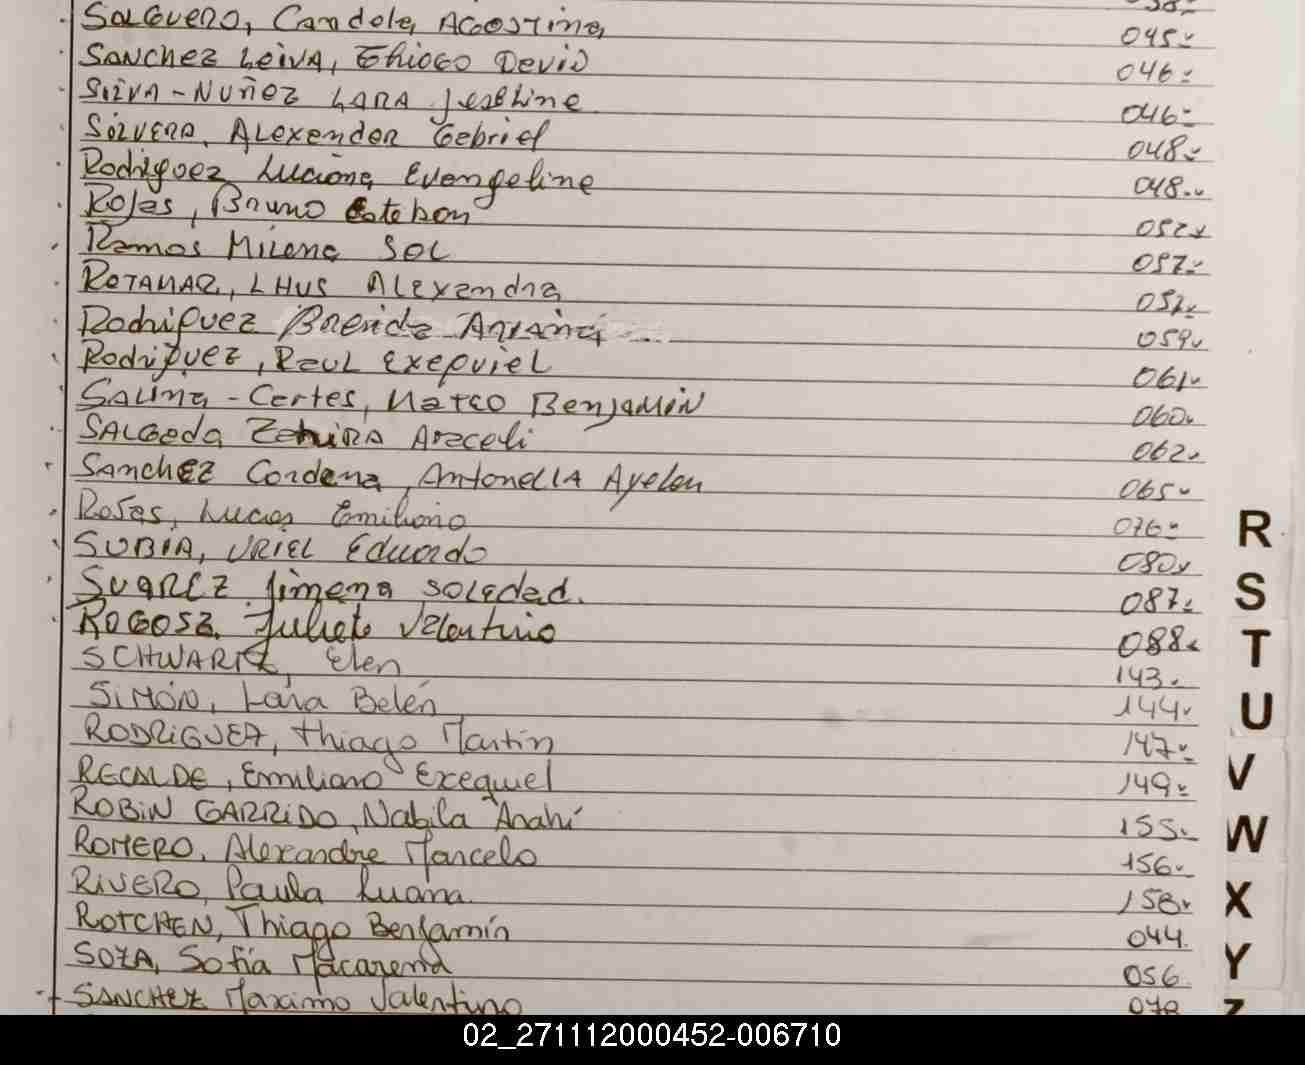 SALGUERO, Candela, AGOSTINA, 045.-
SANCHEZ LEIVA, Thiago David 046.-
SILVA-NUÑEZ LARA Jeshine 046.-
SILVERA, ALEXANDER Gabriel 048.-
Rodriguez Luciana Evangeline 048.-
Rojas, Bruno Esteban 052.-
Ramos Milena SOL 057.-
ROTAMAR, LHUS Alexandra 057.-
Rodriguez Brenda 059.-
Rodriguez, Raul Exequiel 061.-
SALINA - Cortes, Marco BENJAMIN 060.-
SALGADA ZAHIRA Araceli 062.-
SANCHEZ Cardena, Antonella Ayelen 065.-
Rojas, Lucas Emiliano 076.-
SUBIA, URIEL Eduardo 080.-
SUAREZ Jimena SOLEDAD. 087.-
ROGOSZ. Julieta Valentina 088.-
SCHWARTZ, Elen 143.-
SIMÓN, Lara Belén 144.-
RODRIGUEZ, Thiago Martín 147.-
RECALDE, Emiliano Exequiel 149.-
ROBIN GARRIDO, Nabila Anahí 155.-
ROMERO, Alexandre Marcelo 156.-
RIVERO, Paula Luana. 158.-
ROTCHEN, Thiago Benjamín 044.
SOZA, Sofía Macarena 056
SANCHEZ Maximo Valentino 078
R
S
T
U
V
W
X
Y
Z
02_271112000452-006710